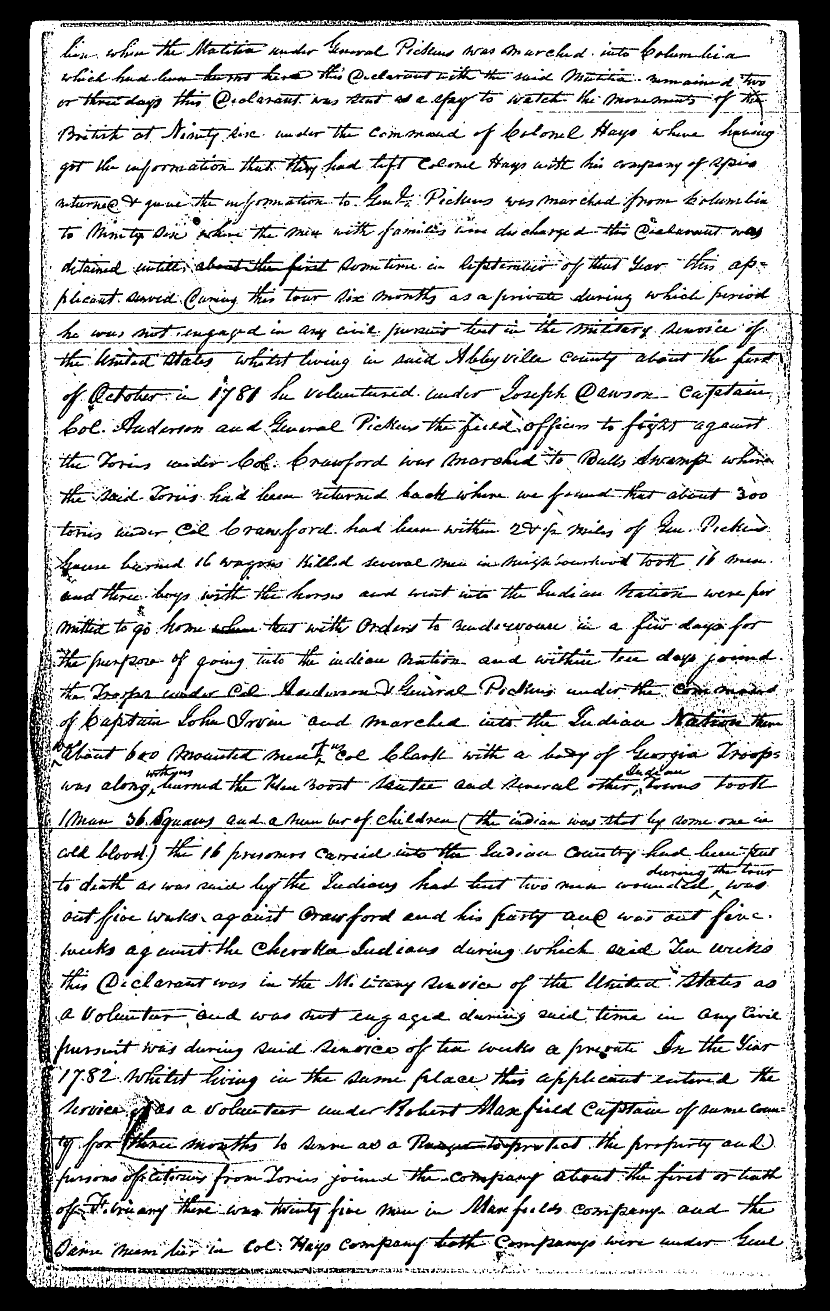 him when the Malitia under General Pickens was marched into Columbia
which had been burnt here this Declarant with the said Malitia remained two
or three days this Declarant was sent as a spy to watch the movements of the
British at Ninety six under the command of Colonel Hays where having
got the information that they had left Colonel Hays with his company of spies
returned & gave the information to Genl. Pickens was marched from Columbia
to Ninety Six where the men with families were discharged this Declarant was
detained untill about the first sometime in September of that Year this ap=
plicant served during this tour six months as a private during which period
he was not engaged in any civil pursuit but in the military service of
the United States whilst living in said Abbyville county about the first
of October in 1781 he volunteered under Joseph Dawson Captain
Col. Anderson and General Pickens the field officers to fight against
the Tories under Col. Crawford was marched to Bulls Swamp where
the said Tories had been returned back where we found that about 300
tories under Col Crawford had been within 2 & 1/2 miles of Gen. Pickens
house burned 16 wagons killed several men in neighbourhood took 16 men
and three boys with the horses and went into the Indian Nation were per
mitted to go home when but with Orders to rendezvouse in a few days for
the purpose of going into the indian nation and within ten days joined
the Troops under Col Anderson & General Pickens under the command
of Captain John Irvin and marched into the Indian Nation there
about 600 mounted men of us Col Clark with a body of Georgia Troops
was along with us burned the and several other Indian Towns took
1 Man 36 Squaws and a number of children (the indian was shot by some one in
cold blood) the 16 prisoners carried into the Indian Country had been put
to death as was said by the Indians had but two men wounded during the tour was
out five weeks against Crawford and his party and was out five
weeks against the Cherokee Indians during which said Ten weeks
this Declarant was in the Military Service of the United States as
a Volunteer and was not engaged during said time in any Civil
pursuit was during said service of ten weeks a private In the Year
1782 whilst living in the same place this applicant entered the
service as a volunteer under Robert Maxfield Captain of same coun-
ty for three months to serve as a Ranger to protect the property and
persons of citizens from Tories joined the company about the first or tenth
of February there was twenty five men in Maxfields company and the
same number in Col. Hays company both companys were under Genl